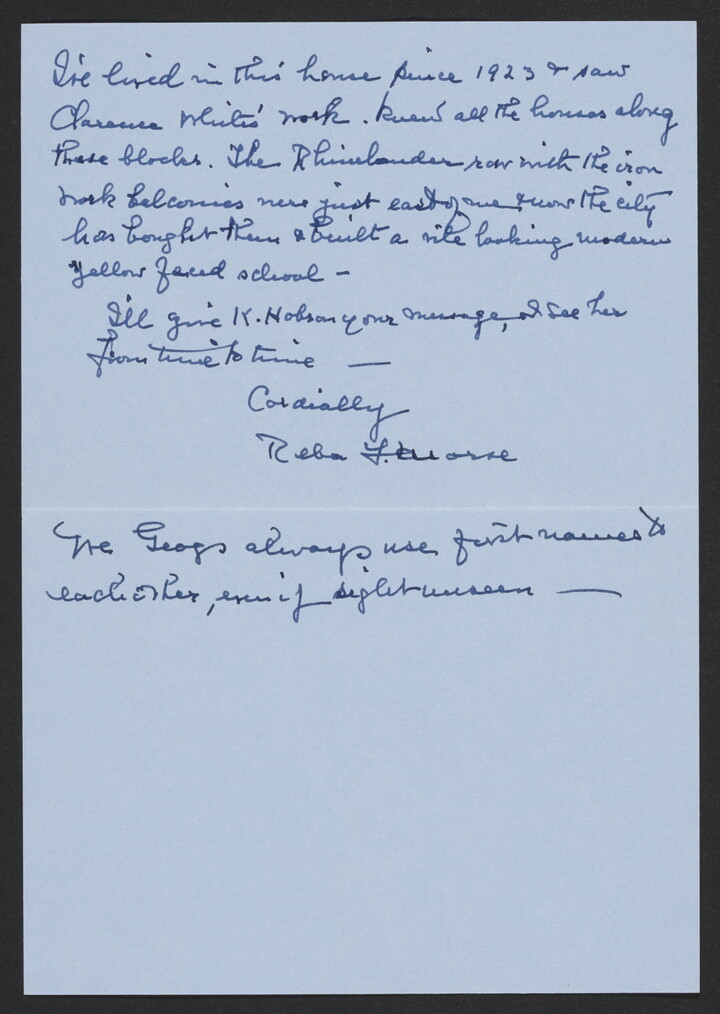 I've lived in this house since 1923 & saw
Clarence White's work. Knew all the houses along
these blocks. The Rhinelander row with the iron
work balconies were just east of me & now the city
has bought them & built a vile looking modern
yellow faced school —
I'll give K. Hobson your message, I see her
from time to time —
Cordially
Reba F. Morse
We Geogs always use first names to
each other, even if sight unseen —